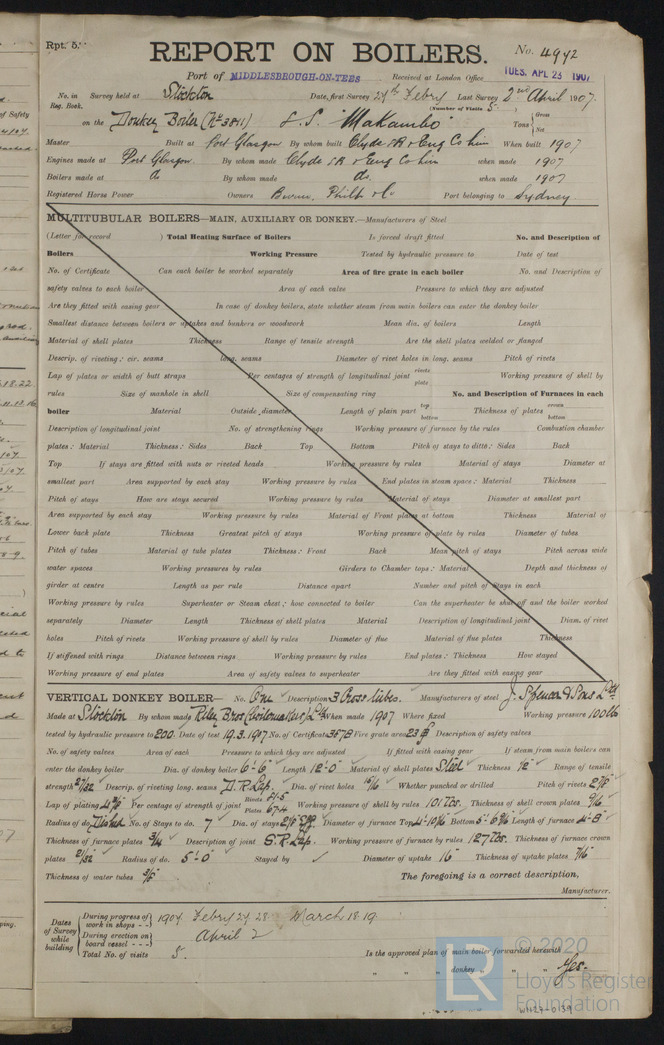 Rpt. 5.
REPORT ON BOILERS.
No. 4942
Port of MIDDLESBROUGH-ON-TEES Received at London Office TUES. APL 23 1907
No. in Survey held at Stockton Date, first Survey 27th Febry Last Survey 2nd April 1907.
Reg. Book. (Number of Visits 5
on the Donkey Boiler (No 3811) S.S. "Makambo" Tons Gross Net
Master Built at Port Glasgow By whom built Clyde SB & Eng Co Lim When built 1907
Engines made at Port Glasgow By whom made Clyde SB & Eng Co Lim when made 1907
Boilers made at do By whom made do. when made 1907
Registered Horse Power Owners Burns, Philp & Co Port belonging to Sydney
MULTITUBULAR BOILERS—MAIN, AUXILIARY OR DONKEY.—Manufacturers of Steel
(Letter for record ) Total Heating Surface of Boilers Is forced draft fitted No. and Description of
Boilers Working Pressure Tested by hydraulic pressure to Date of test
No. of Certificate Can each boiler be worked separately Area of fire grate in each boiler No. and Description of
safety valves to each boiler Area of each valve Pressure to which they are adjusted
Are they fitted with easing gear In case of donkey boilers, state whether steam from main boilers can enter the donkey boiler
Smallest distance between boilers or uptakes and bunkers or woodwork Mean dia. of boilers Length
Material of shell plates Thickness Range of tensile strength Are the shell plates welded or flanged
Descrip. of riveting: cir. seams long. seams Diameter of rivet holes in long. seams Pitch of rivets
Lap of plates or width of butt straps Per centages of strength of longitudinal joint rivets plate Working pressure of shell by
rules Size of manhole in shell Size of compensating ring No. and Description of Furnaces in each
boiler Material Outside diameter Length of plain part top bottom Thickness of plates crown bottom
Description of longitudinal joint No. of strengthening rings Working pressure of furnace by the rules Combustion chamber
plates: Material Thickness: Sides Back Top Bottom Pitch of stays to ditto: Sides Back
Top If stays are fitted with nuts or riveted heads Working pressure by rules Material of stays Diameter at
smallest part Area supported by each stay Working pressure by rules End plates in steam space: Material Thickness
Pitch of stays How are stays secured Working pressure by rules Material of stays Diameter at smallest part
Area supported by each stay Working pressure by rules Material of Front plates at bottom Thickness Material of
Lower back plate Thickness Greatest pitch of stays Working pressure of plate by rules Diameter of tubes
Pitch of tubes Material of tube plates Thickness: Front Back Mean pitch of stays Pitch across wide
water spaces Working pressures by rules Girders to Chamber tops: Material Depth and thickness of
girder at centre Length as per rule Distance apart Number and pitch of Stays in each
Working pressure by rules Superheater or Steam chest; how connected to boiler Can the superheater be shut off and the boiler worked
separately Diameter Length Thickness of shell plates Material Description of longitudinal joint Diam. of rivet
holes Pitch of rivets Working pressure of shell by rules Diameter of flue Material of flue plates Thickness
If stiffened with rings Distance between rings Working pressure by rules End plates: Thickness How stayed
Working pressure of end plates Area of safety valves to superheater Are they fitted with easing gear
VERTICAL DONKEY BOILER— No. One Description 3 Cross tubes. Manufacturers of steel J. Spencer & Sons Ltd
Made at Stockton By whom made Riley Bros (Boilermakers) Ltd When made 1907 Where fixed Working pressure 100 lb
tested by hydraulic pressure to 200. Date of test 19.3.1907 No. of Certificate 3878 Fire grate area Description of safety valves
No. of safety valves Area of each Pressure to which they are adjusted If fitted with easing gear If steam from main boilers can
enter the donkey boiler Dia. of donkey boiler 6'-6" Length 12'-0" Material of shell plates Steel Thickness 1/2" Range of tensile
strength 27/32 Descrip. of riveting long. seams D.R. Lap. Dia. of rivet holes 15/16" Whether punched or drilled Pitch of rivets
Lap of plating Per centage of strength of joint Rivets Plates 67.4 Working pressure of shell by rules 101 lbs. Thickness of shell crown plates 9/16"
Radius of do. Dished No. of Stays to do. 7 Dia. of stays Diameter of furnace Top Bottom Length of furnace 4'-8"
Thickness of furnace plates 3/4 Description of joint S.R. Lap. Working pressure of furnace by rules 127 lbs. Thickness of furnace crown
plates 21/32 Radius of do. 5'-0" Stayed by Diameter of uptake 16" Thickness of uptake plates 7/16"
Thickness of water tubes 3/8" The foregoing is a correct description,
Manufacturer.
Dates of Survey while building
During progress of work in shops - - 1907. Febry 27. 28. March 18. 19.
During erection on board vessel - - - April 2
Total No. of visits 5. Is the approved plan of main boiler forwarded herewith
" " " donkey " " " Yes.
© 2020
LR
Lloyd's Register
Foundation
W1127-0139